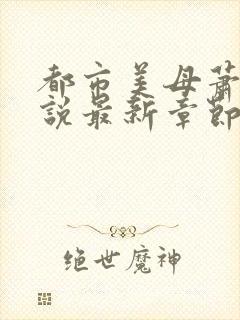 都市美母萧
说最新章節
绝世魔神